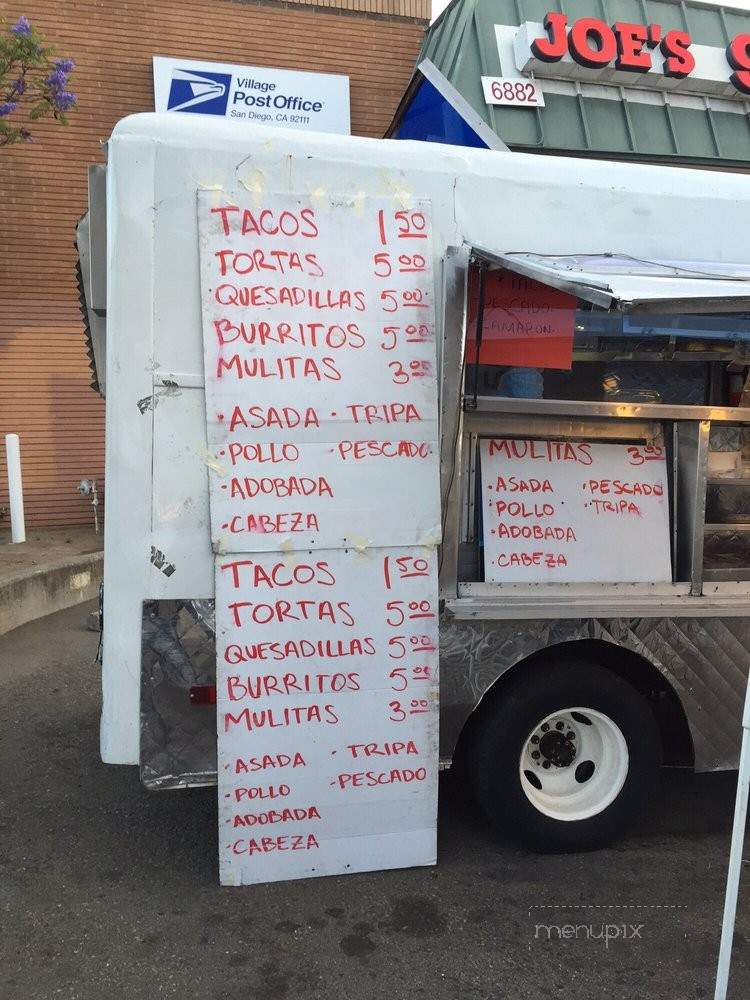 Village
Post Office
San Diego, CA 92111
JOE'S
6882
TACOS 1 50
TORTAS 5 00
• QUESADILLAS 5 00
BURRITOS 5 00
MULITAS 3 00
• ASADA • TRIPA
• POLLO • PESCADO
• ADOBADA
• CABEZA
PESCADO
CAMARON
MULITAS 3 00
• ASADA • PESCADO
• POLLO • TRIPA
• ADOBADA
• CABEZA
TACOS 1 50
TORTAS 5 00
QUESADILLAS 5 00
BURRITOS 5 00
MULITAS 3 00
• ASADA • TRIPA
• POLLO • PESCADO
• ADOBADA
• CABEZA
menupix